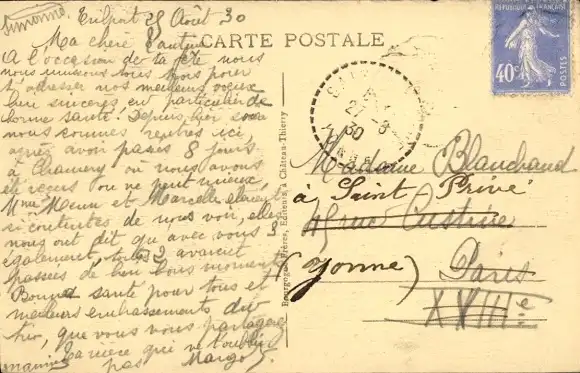 Simone
Trilport 25 Août 30
Ma chère Tantine
CARTE POSTALE
A l'occasion de ta fête nous
nous unissons tous trois pour
t'adresser nos meilleurs vœux
bien sincères en particulier de
bonne santé. Depuis hier soir
nous sommes rentrés ici,
après avoir passés 8 jours
à où nous avons
été reçus on ne peut mieux,
Mme et Marcelle étaient
si contentes de nous voir, elles
nous ont dit que avec vous 3
également, toutes 2 avaient
passées de bien bons moments
Bonne santé pour tous et
meilleurs embrassements du
trio, que vous vous partagerez
marraine qui ne t'oublie
pas Margot
Bourgogne Frères, Editeurs à Château-Thierry
RÉPUBLIQUE FRANÇAISE
40c
27-8
30
Madame Blanchard
à Saint Privé
45 rue Custine
(Yonne) Paris
XVIIIe